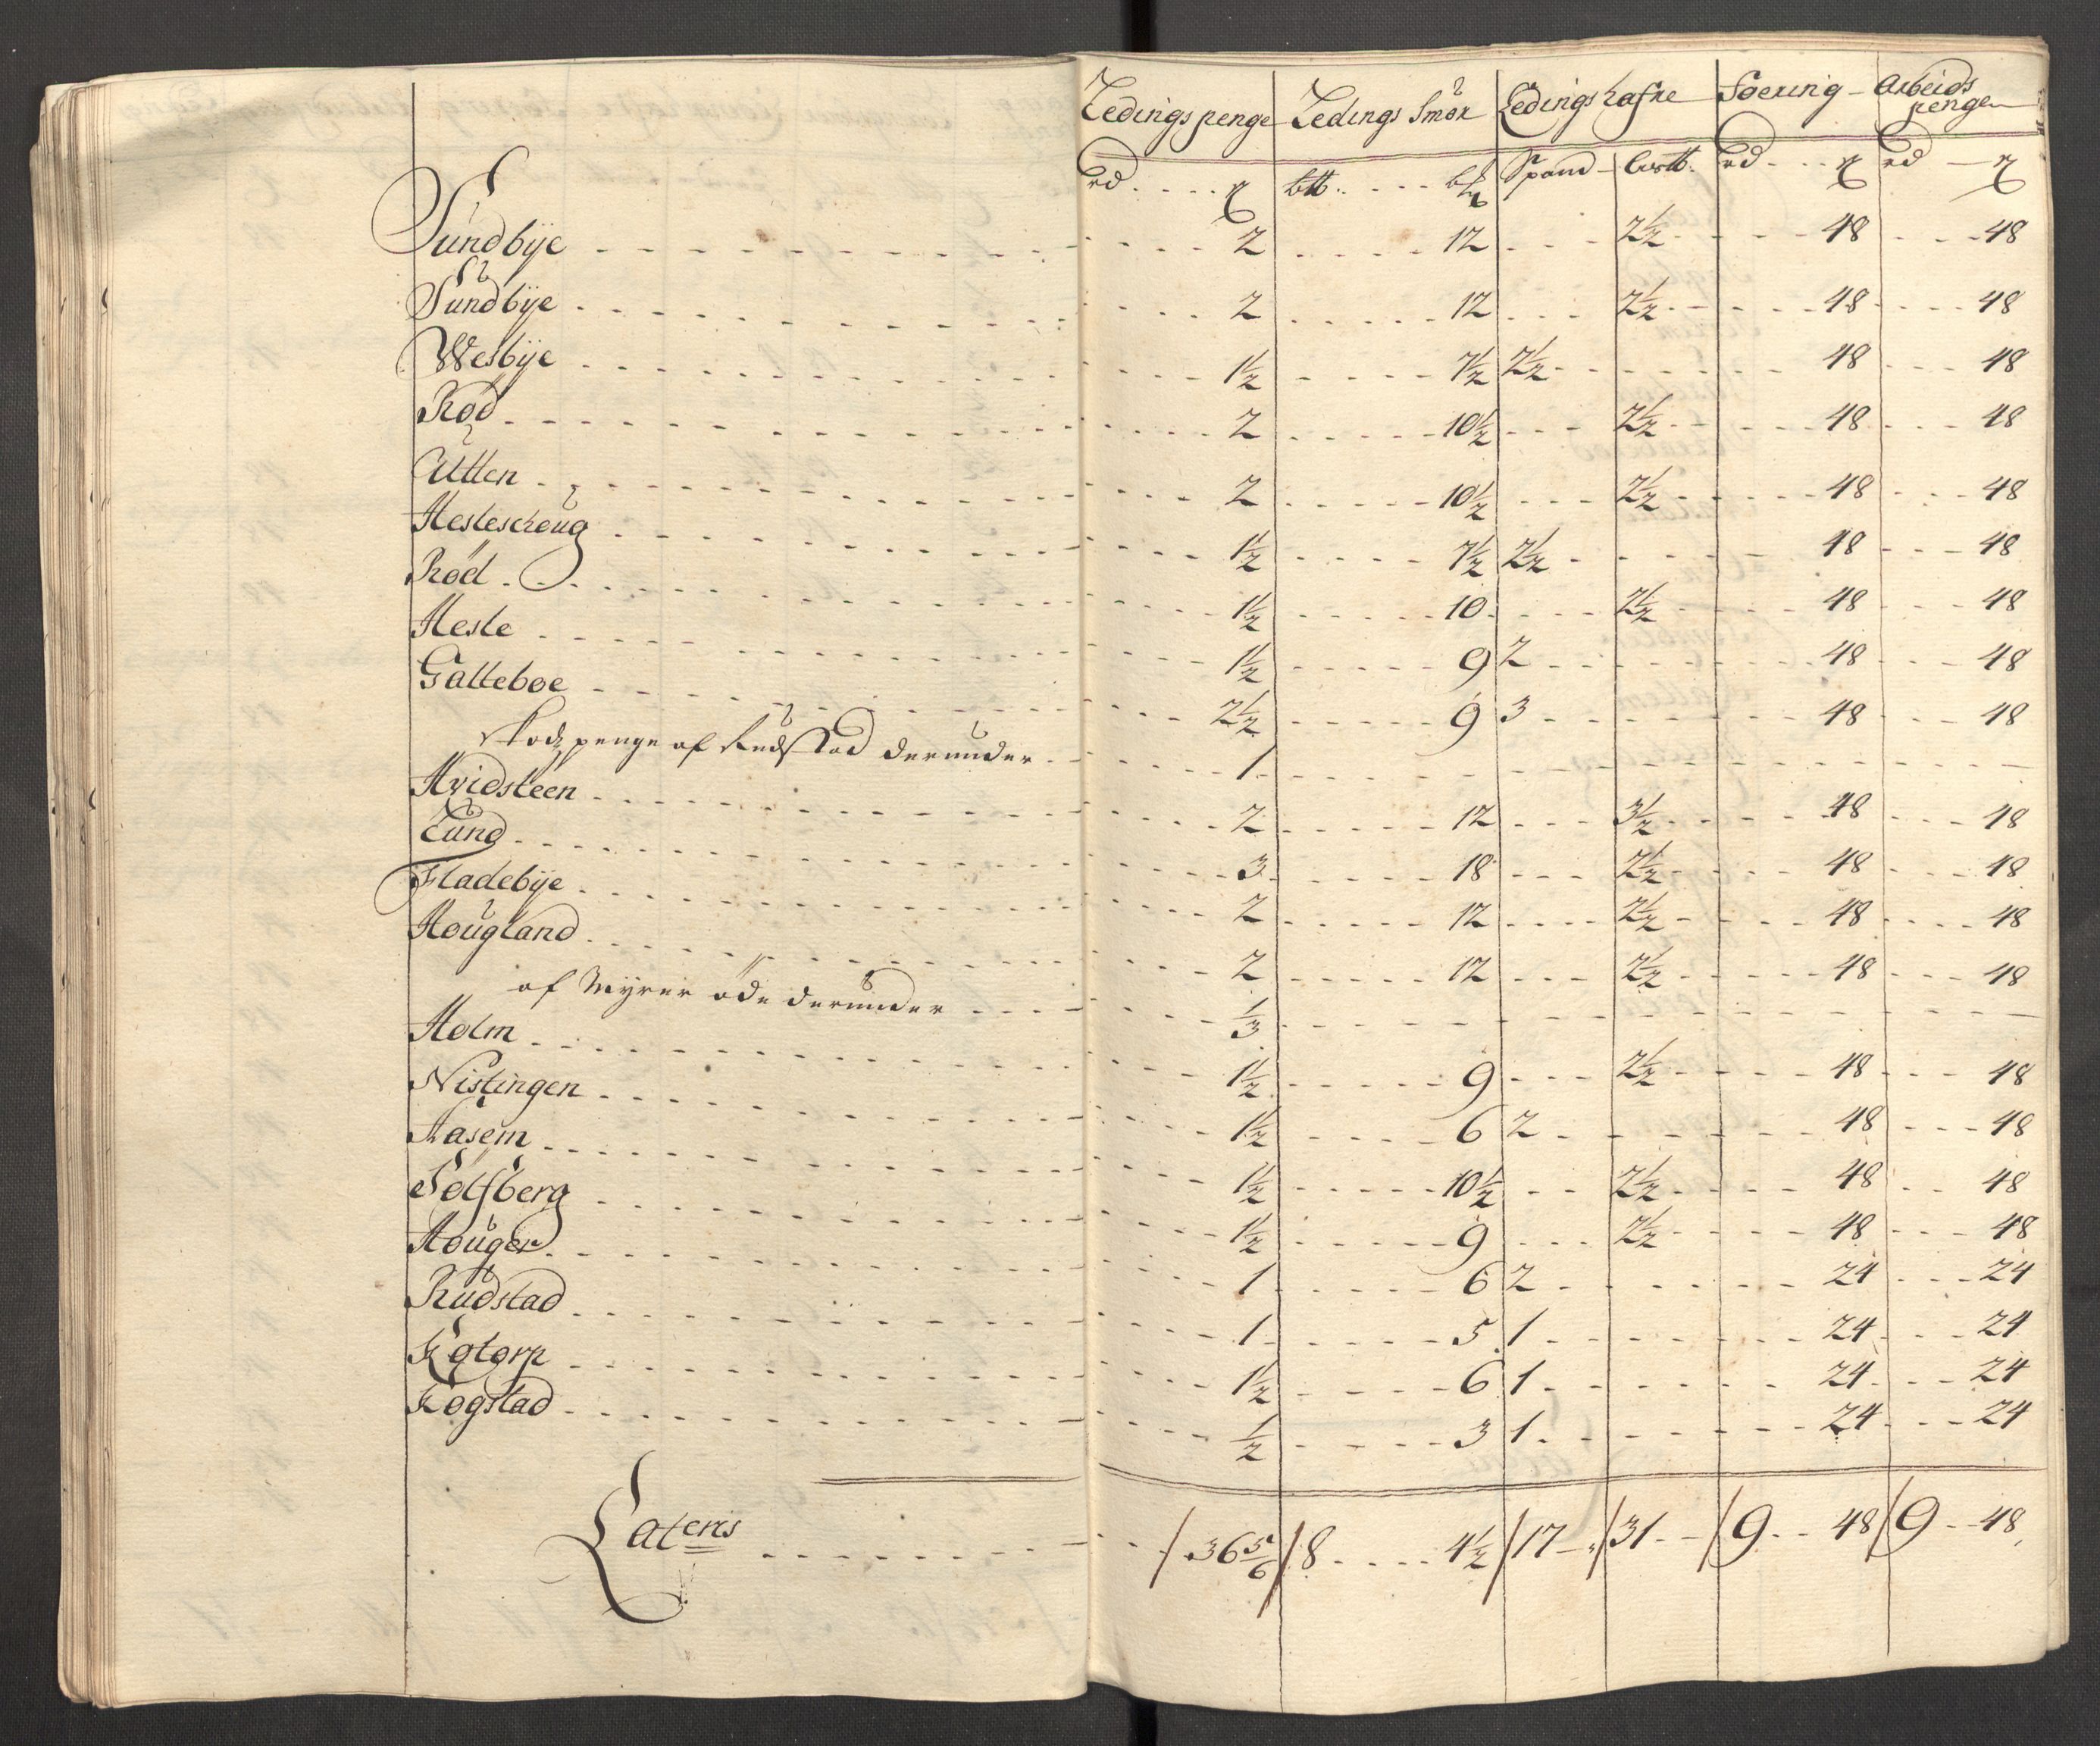 Ledings penge Ledings Smör Ledings hafre Foering Arbeids penger
rd ß btt. bℳ Spand bestt. rd ß rd ß
Sundbÿe 2 12 2½ 48 48
Sundbÿe 2 12 2½ 48 48
Wesbÿe 1½ 7½ 2½ 48 48
Röd 2 10½ 2½ 48 48
Utten 2 10½ 2½ 48 48
Hesleschoug 1½ 7½ 2½ 48 48
Röd 1½ 10 2½ 48 48
Hesle 1½ 9 2 48 48
Galteboe 2½ 9 3 48 48
penge af Rudstad derunder 1
Hvidsteen 2 12 3½ 48 48
Lund 3 18 2½ 48 48
Fladebÿe 2 12 2½ 48 48
Hougland 2 12 2½ 48 48
af Myrer öde derunder ⅓
Holm 1½ 9 2½ 48 48
Nistingen 1½ 6 2 48 48
Aasem 1½ 10½ 2½ 48 48
Solfberg 1½ 9 2½ 48 48
Houger 1 6 2 24 24
Rudstad 1 5 1 24 24
Kotorp 1½ 6 1 24 24
Kogstad ½ 3 1 24 24
Lateris / 36 5/6 / 8 4½ / 17 / 31 / 9 48 / 9 48